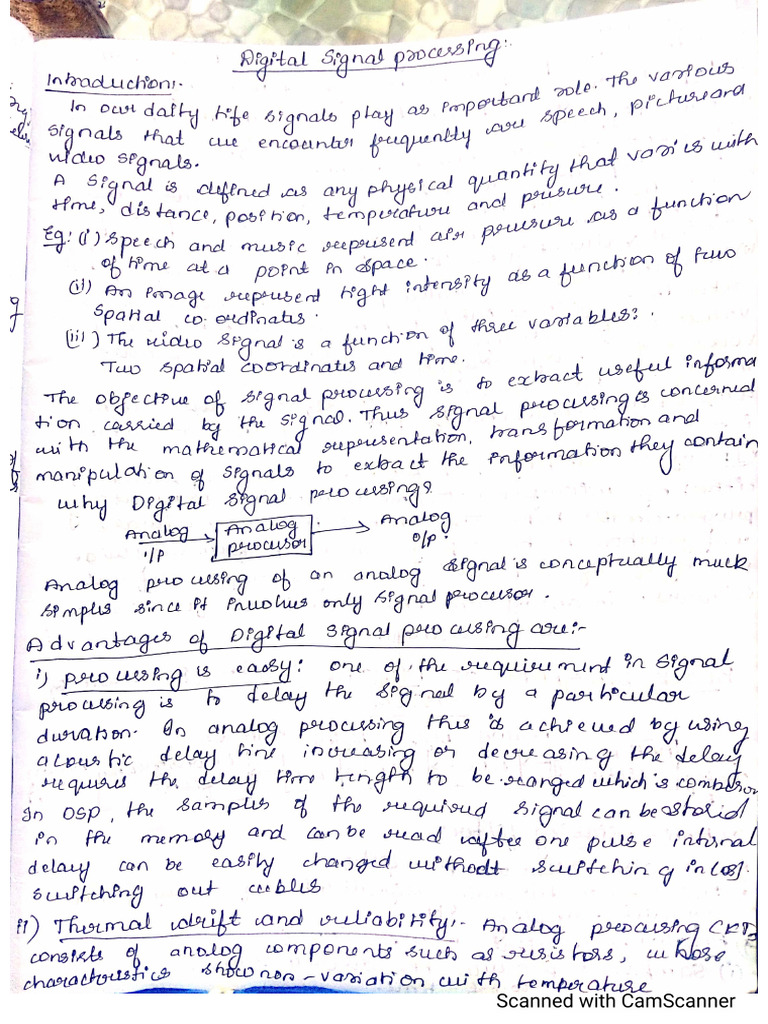 Digital Signal processing:
Introduction:-
In our daily life signals play as important role. The various
signals that we encounter frequently are speech, picture and
video signals.
A signal is defined as any physical quantity that varies with
time, distance, position, temperature and presure.
Eg: (i) Speech and music represend air presure as a function
of time at a point in space.
(ii) An image represend light intensity as a function of two
spatial co-ordinates.
(iii) The video signal is a function of three variables:
Two spatial coordinates and time.
The objective of signal processing is to extract useful informa
tion carried by the signal. Thus signal processing is concerned
with the mathematical representation, transformation and
manipulation of signals to extract the information they contain
why Digital signal processing?
Analog
i/p
Analog
processor
Analog
o/p
Analog processing of an analog signal is conceptually much
simples since it involves only signal processor.
Advantages of Digital signal processing are:-
i) processing is easy: one of the requirement in signal
processing is to delay the signal by a particular
duration. In analog processing this is achieved by using
acoustic delay line increasing or decreasing the delay
requires the delay line length to be changed which is
In DSP, the samples of the required signal can be stored
in the memory and can be read after one pulse interval
delay can be easily changed without switching in (or)
switching out cables
ii) Thermal drift and reliability:- Analog processing CKTs
consists of analog components such as resistors, whose
characteristics show non-variation with temperature
Scanned with CamScanner